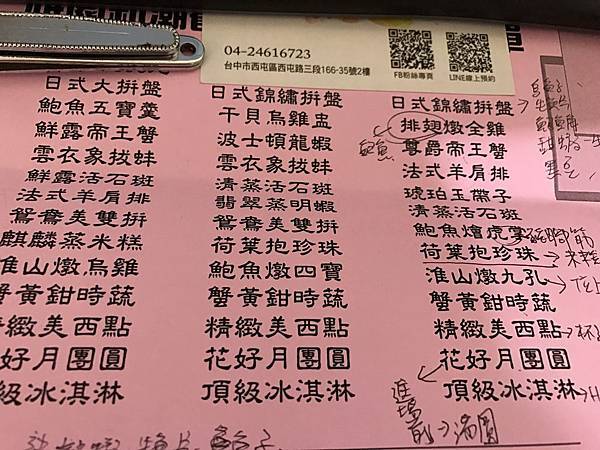 04-24616723
台中市西屯區西屯路三段166-35號2樓
FB粉絲專頁
LINE線上預約
日式大拼盤
鮑魚五寶羹
鮮露帝王蟹
雲衣象拔蚌
鮮露活石斑
法式羊肩排
鴛鴦美雙拼
麒麟蒸米糕
淮山燉烏雞
蟹黃鉗時蔬
精緻美西點
花好月團圓
頂級冰淇淋
日式錦繡拼盤
干貝烏雞盅
波士頓龍蝦
雲衣象拔蚌
清蒸活石斑
翡翠蒸明蝦
鴛鴦美雙拼
荷葉抱珍珠
鮑魚燉四寶
蟹黃鉗時蔬
精緻美西點
花好月團圓
頂級冰淇淋
日式錦繡拼盤
排翅燉全雞
鮑魚
尊爵帝王蟹
法式羊肩排
琥珀玉帶子
清蒸活石斑
鮑魚燴虎掌
荷葉抱珍珠
淮山燉九孔
蟹黃鉗時蔬
精緻美西點
花好月團圓
頂級冰淇淋
進場
前→湯圓